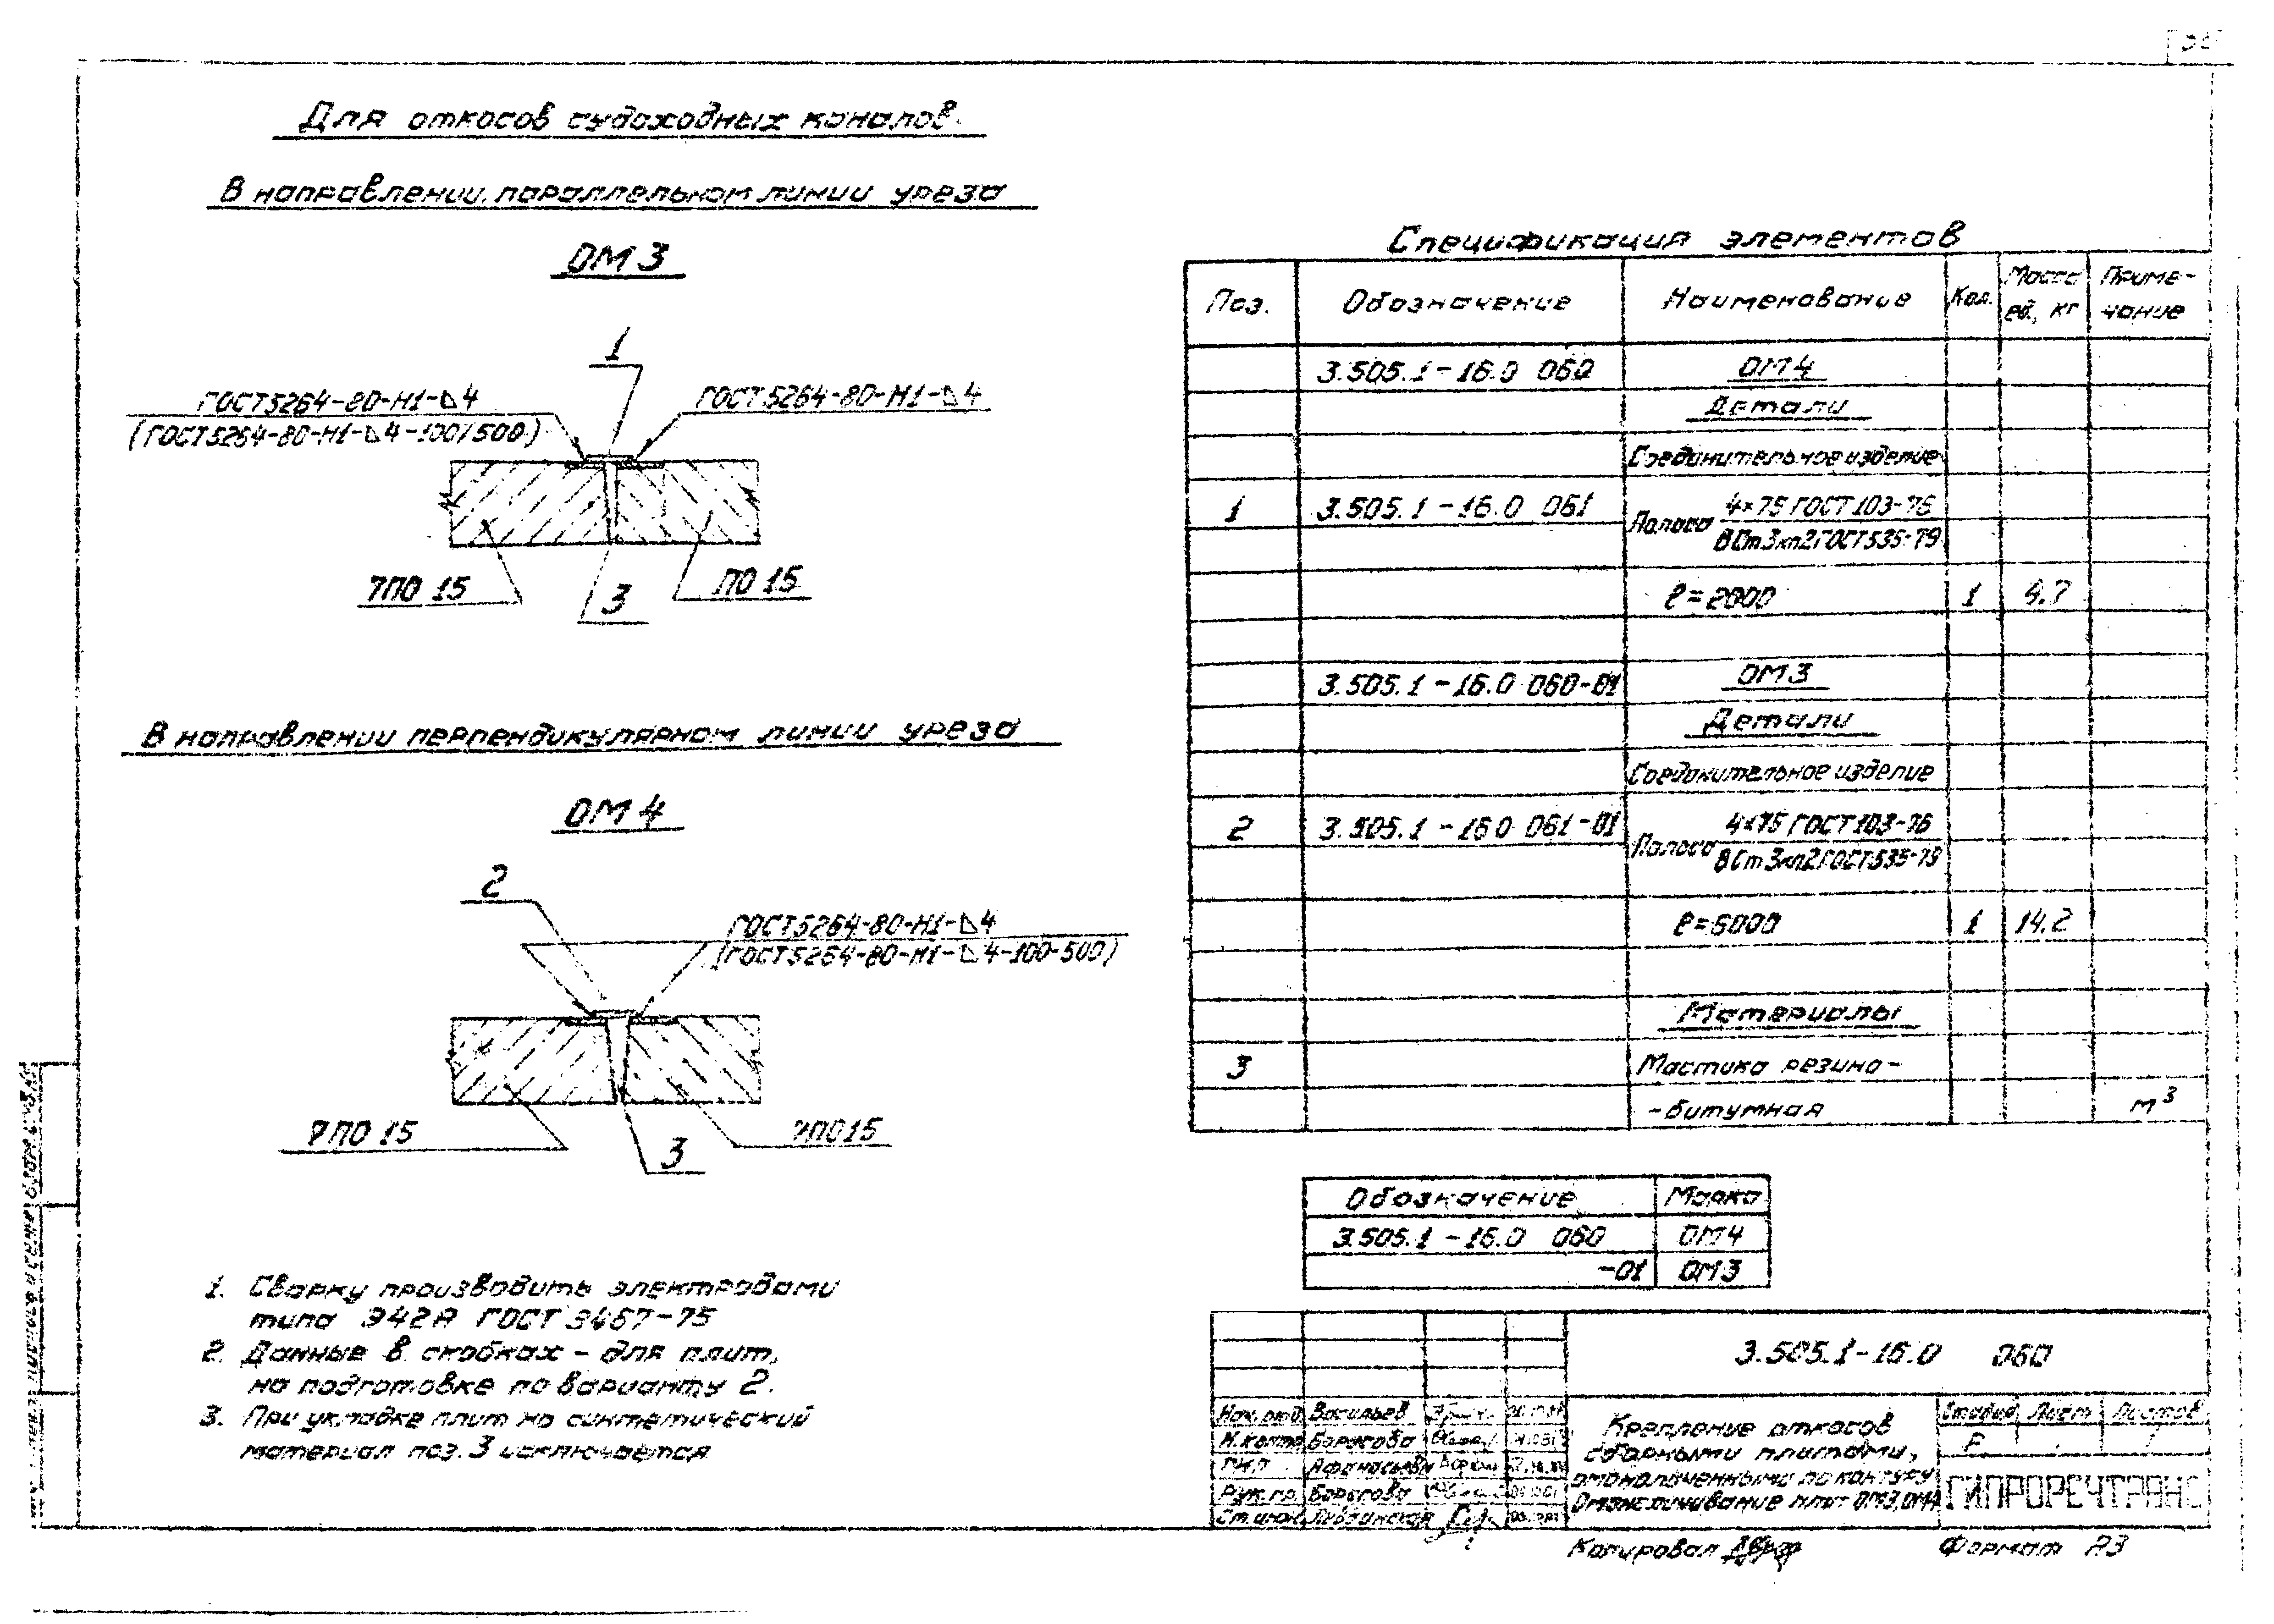 Для откосов судоходных каналов.
В направлении параллельном линии уреза
ОМ 3
1
ГОСТ 5264-80-Н1-⊿4
(ГОСТ 5264-80-Н1-⊿4-100/500)
ГОСТ 5264-80-Н1-⊿4
7ПО 15
3
ПО 15
В направлении перпендикулярном линии уреза
ОМ 4
2
ГОСТ 5264-80-Н1-⊿4
(ГОСТ 5264-80-Н1-⊿4-100-500)
7ПО 15
3
7ПО 15
1. Сварку производить электродами
типа Э42А ГОСТ 9467-75
2. Данные в скобках - для плит,
на подготовке по варианту 2.
3. При укладке плит на синтетический
материал поз. 3 исключается
Спецификация элементов
Поз. Обозначение Наименование Кол. Масса ед., кг Приме-чание
3.505.1-16.0 060 ОМ4
Детали
Соединительное изделие
1 3.505.1-16.0 061 Полоса 4×75 ГОСТ 103-76
ВСт3кп2 ГОСТ 535-79
ℓ=2000 1 4.7
3.505.1-16.0 060-01 ОМ3
Детали
Соединительное изделие
2 3.505.1-16.0 061-01 Полоса 4×75 ГОСТ 103-76
ВСт3кп2 ГОСТ 535-79
ℓ=6000 1 14.2
Материалы
3 Мастика резино-
-битумная м³
Обозначение Марка
3.505.1-16.0 060 ОМ4
-01 ОМ3
3.505.1-16.0 060
Нач. отд. Васильев
Н.контр. Борисова
ГИП
Рук. гр. Борисова
Ст. инж.
Крепление откосов
сборными плитами,
омоноличенными по контуру
Омоноличивание плит ОМ3, ОМ4
Стадия Лист Листов
Р 1
ГИПРОРЕЧТРАНС
Копировал
Формат А3